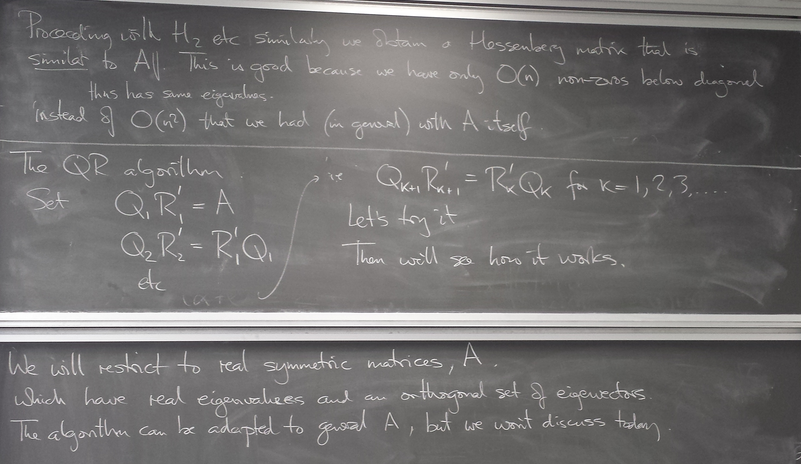 Proceeding with H₂ etc similarly we obtain a Hessenberg matrix that is
similar to A. This is good because we have only O(n) non-zeros below diagonal
thus has same eigenvalues.
instead of O(n²) that we had (in general) with A itself.
The QR algorithm.
Set Q₁R₁' = A
Q₂R₂' = R₁'Q₁
etc
ie Qₖ₊₁R'ₖ₊₁ = Rₖ'Qₖ for k=1,2,3,....
Let's try it
Then we'll see how it works.
We will restrict to real symmetric matrices, A.
which have real eigenvalues and an orthogonal set of eigenvectors.
The algorithm can be adapted to general A, but we won't discuss today.